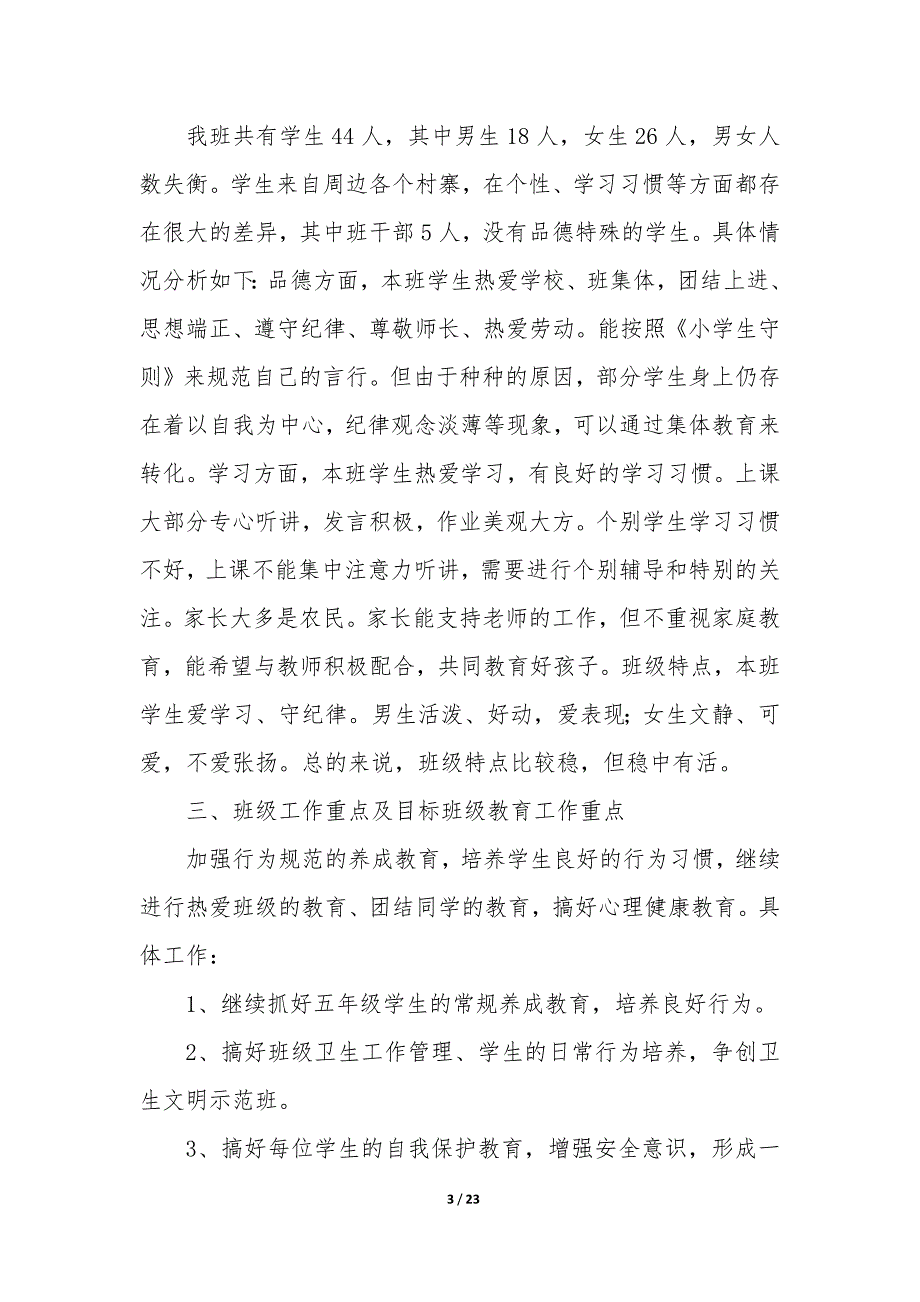 我班共有学生 44 人，其中男生 18 人，女生 26 人，男女人
数失衡。学生来自周边各个村寨，在个性、学习习惯等方面都存
在很大的差异，其中班干部 5 人，没有品德特殊的学生。具体情
况分析如下：品德方面，本班学生热爱学校、班集体，团结上进、
思想端正、遵守纪律、尊敬师长、热爱劳动。能按照《小学生守
则》来规范自己的言行。但由于种种的原因，部分学生身上仍存
在着以自我为中心，纪律观念淡薄等现象，可以通过集体教育来
转化。学习方面，本班学生热爱学习，有良好的学习习惯。上课
大部分专心听讲，发言积极，作业美观大方。个别学生学习习惯
不好，上课不能集中注意力听讲，需要进行个别辅导和特别的关
注。家长大多是农民。家长能支持老师的工作，但不重视家庭教
育，能希望与教师积极配合，共同教育好孩子。班级特点，本班
学生爱学习、守纪律。男生活泼、好动，爱表现；女生文静、可
爱，不爱张扬。总的来说，班级特点比较稳，但稳中有活。
三、班级工作重点及目标班级教育工作重点
加强行为规范的养成教育，培养学生良好的行为习惯，继续
进行热爱班级的教育、团结同学的教育，搞好心理健康教育。具
体工作：
1、继续抓好五年级学生的常规养成教育，培养良好行为。
2、搞好班级卫生工作管理、学生的日常行为培养，争创卫
生文明示范班。
3、搞好每位学生的自我保护教育，增强安全意识，形成一
3 / 23